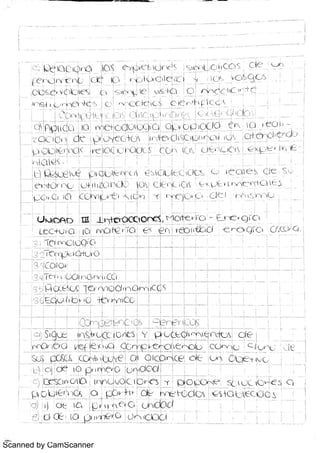 Relaciona los expresiones simbólicas de un
fenomeno de la naturaleza y los rasgos
observables a simple vista o mediante
instrumentos o modelos cientificos
Competencias disciplinares
a) Aplica la metodología apropiada en la reali-
zación de proyectos interdisciplinarios atendiendo
problemas relacionados con las ciencias experime
ntales.
b) Resuelve problemas establecidos o reales de su
entorno utilizando las ciencias experimentales
para la comprensión y mejora del mismo
UNIDAD III Interacciones, Materia - Energia
Lectura la materia es en realidad energia
3.1 Termologia
3.2 Temperatura
3.3 Calor
3.4 Termodinamica
3.5 Termodinamicos
3.6 Equilibrio termico
Competencias Genericas
a) Sigue instrucciones y procedimientos de
manera reflexiva comprendiendo como cada uno de
sus pasos contribuye al alcance de un objetivo
b) c) de la primera unidad
c) Desarrolla innovaciones y propone soluciones a
problemas a partir de metodos establecidos
d) i) de la primera unidad
e) d) de la primera unidad
Scanned by CamScanner